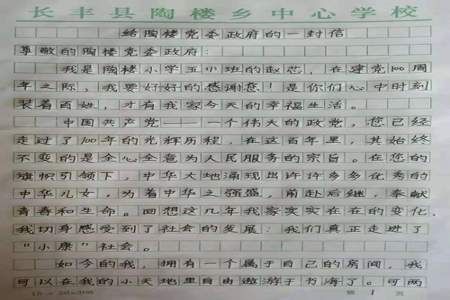 长丰县陶楼乡中心学校
给陶楼党委政府的一封信
尊敬的陶楼党委政府:
我是陶楼小学五小班的赵芯,在建党100周
年之际,我要好好的感谢您!是你们心中时刻
装着百姓,才有我家今天的幸福生活。
中国共产党——一个伟大的政党,您已经
走过了100年的光辉历程,在这百年里,其始终
不变的是全心全意为人民服务的宗旨。在您的
旗帜引领下,中华大地涌现出许许多多优秀的
中华儿女,为着中华之强盛,前赴后继,奉献
青春和生命。回想这几年我家实实在在的变化,
我切身感受到了社会的发展:我们真正走进了
“小康”社会。
如今的我,拥有一个属于自己的房间,我
可以在我的小天地里自由遨游于书海了。可两
第 1 页